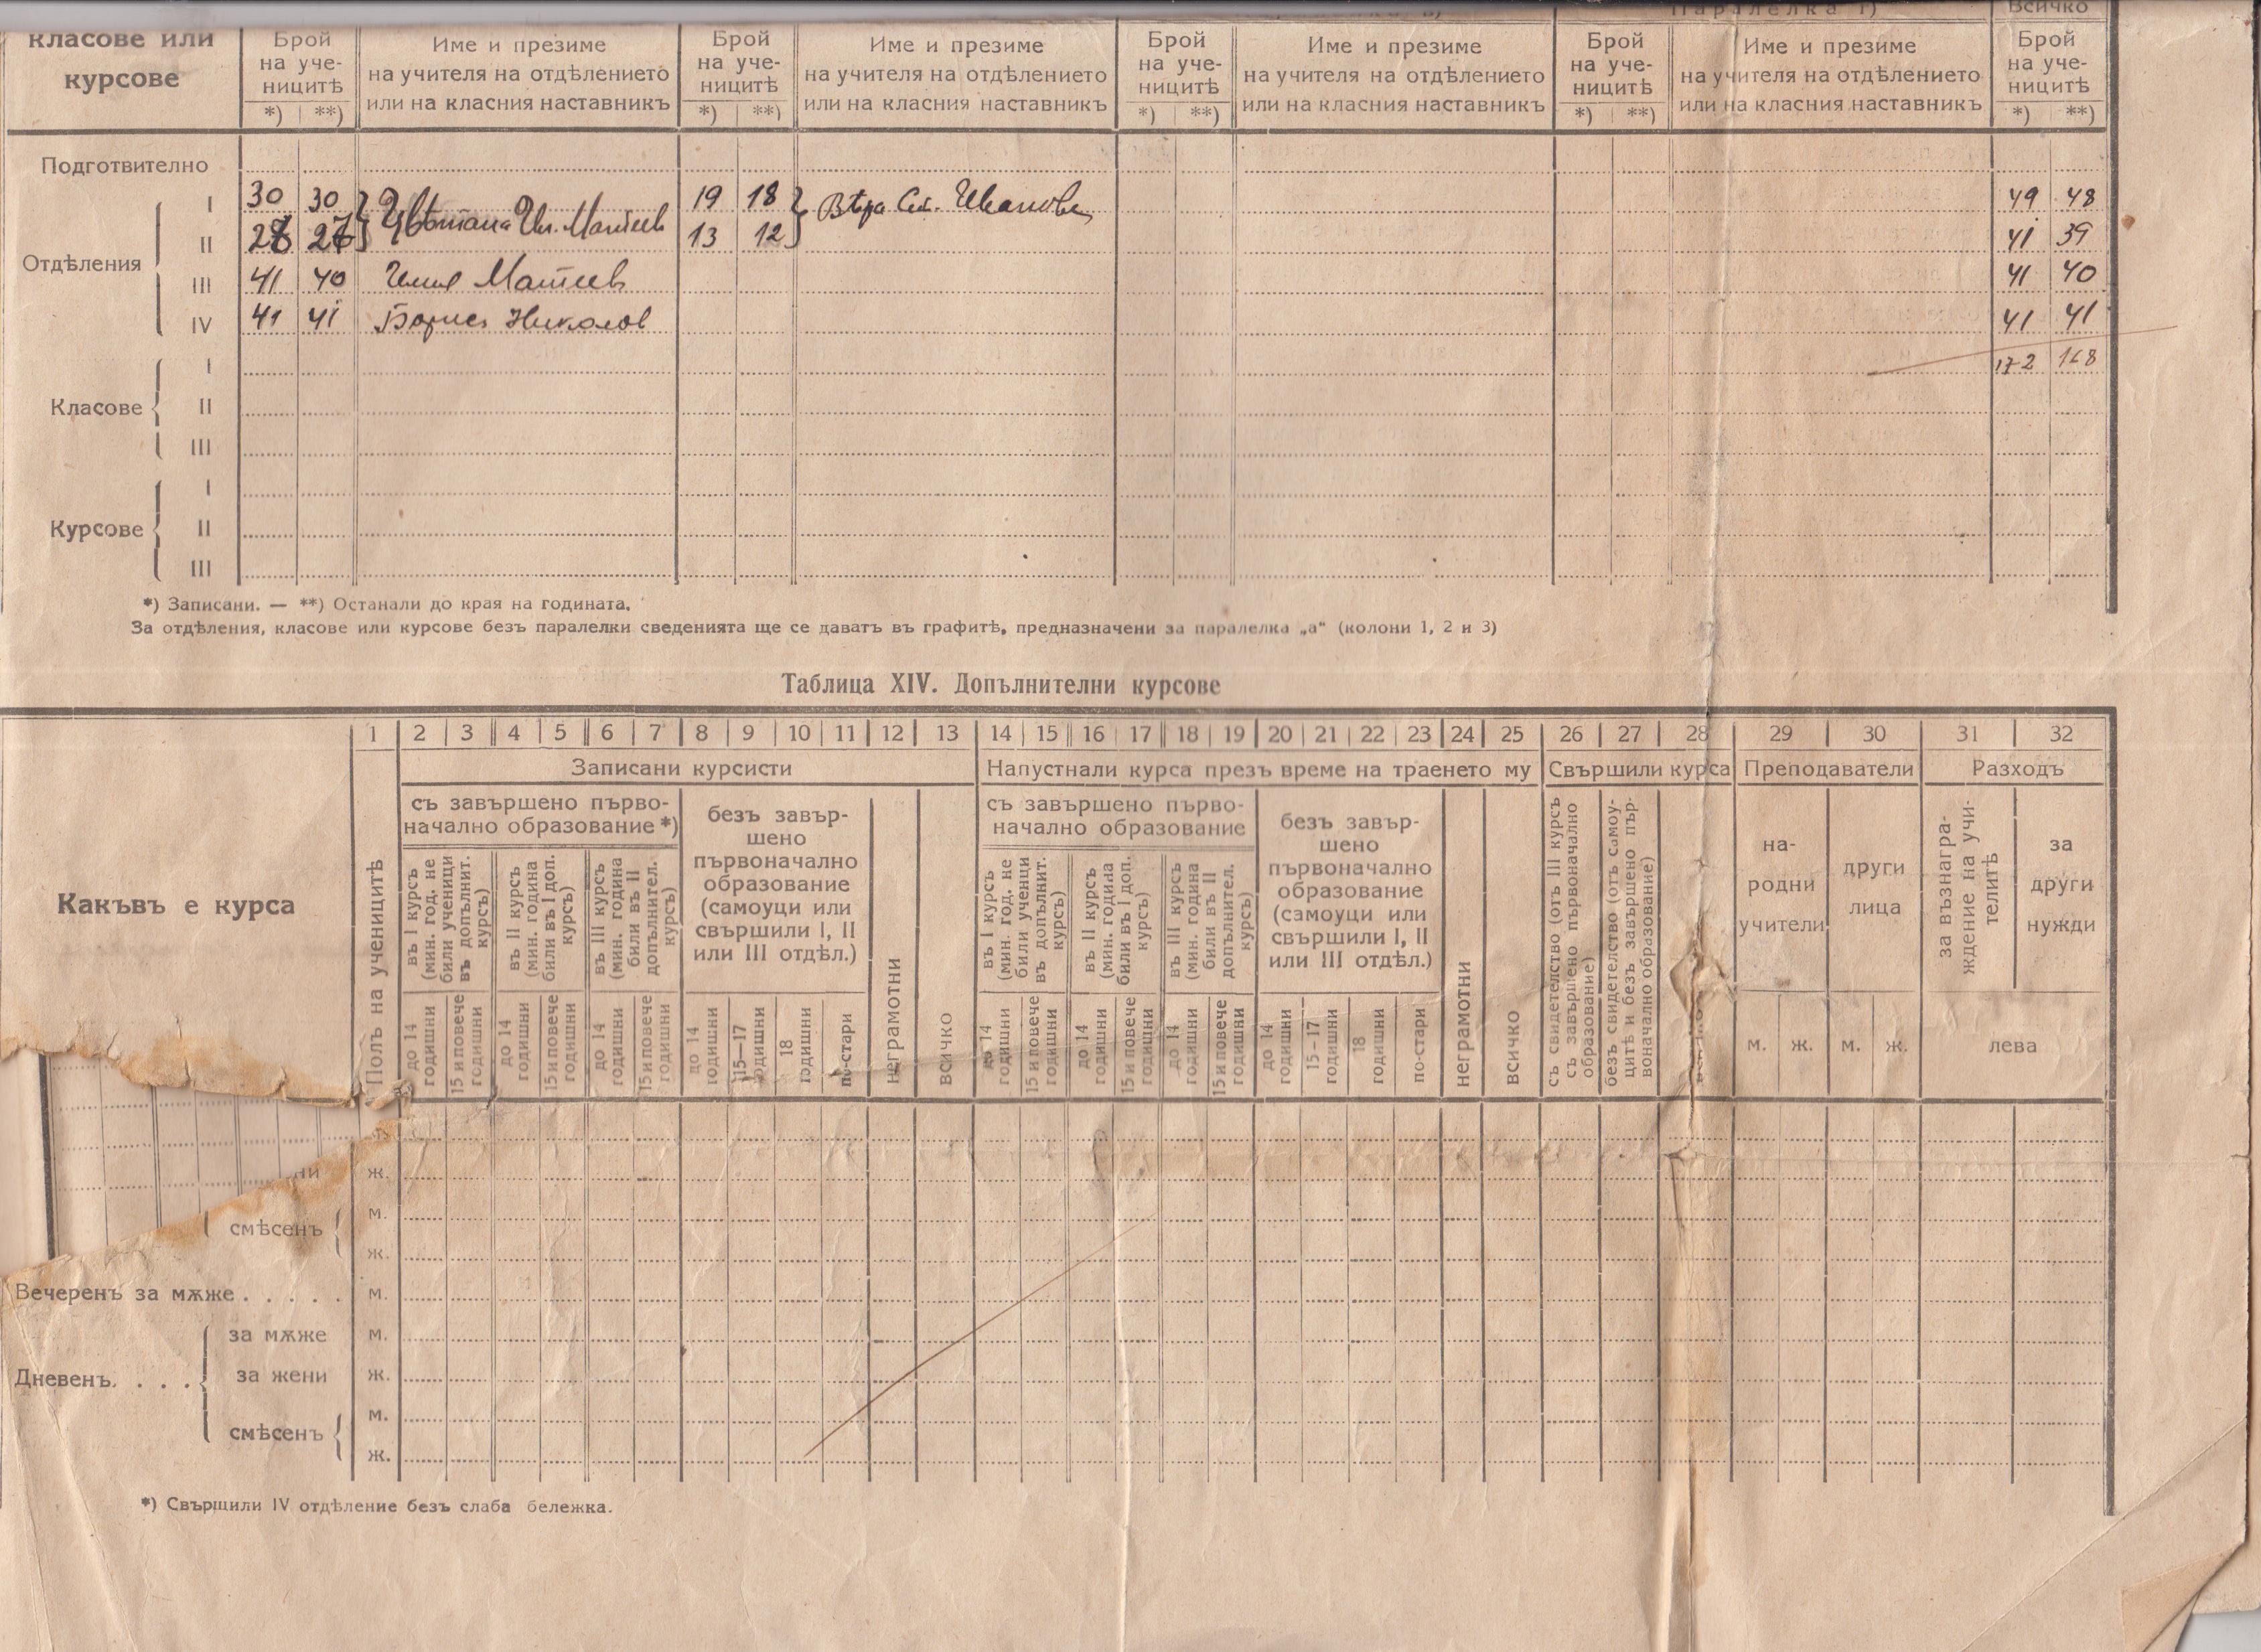 Паралелка г) Всичко
класове или курсове
Брой на уче-ницитѣ *) **)
Име и презиме на учителя на отдѣлението или на класния наставникъ
Брой на уче-ницитѣ *) **)
Име и презиме на учителя на отдѣлението или на класния наставникъ
Брой на уче-ницитѣ *) **)
Име и презиме на учителя на отдѣлението или на класния наставникъ
Брой на уче-ницитѣ *) **)
Име и презиме на учителя на отдѣлението или на класния наставникъ
Брой на уче-ницитѣ *) **)
Подготвително
Отдѣления
I 30 30 19 18 Вѣра Ст. Иванова 49 48
II 28 27 Цвѣтана Ил. Матеева 13 12 41 39
III 41 40 Илия Матеев 41 40
IV 41 41 Борисъ Николов 41 41
172 168
Класове I
II
III
Курсове I
II
III
*) Записани. — **) Останали до края на годината.
За отдѣления, класове или курсове безъ паралелки сведенията ще се даватъ въ графитѣ, предназначени за паралелка „а“ (колони 1, 2 и 3)
Таблица XIV. Допълнителни курсове
1 2 3 4 5 6 7 8 9 10 11 12 13 14 15 16 17 18 19 20 21 22 23 24 25 26 27 28 29 30 31 32
Записани курсисти
Напустнали курса презъ време на траенето му
Свършили курса
Преподаватели
Разходъ
Какъвъ е курса
Полъ на ученицитѣ
съ завършено първо-
начално образование *)
въ I курсъ (мин. год. не били ученици въ допълнит. курсъ)
въ II курсъ (мин. година били въ I доп. курсъ)
въ III курсъ (мин. година били въ II допълнител. курсъ)
безъ завър-
шено
първоначално
образование
(самоуци или
свършили I, II
или III отдѣл.)
неграмотни
всичко
съ завършено първо-
начално образование
въ I курсъ (мин. год. не били ученци въ допълнит. курсъ)
въ II курсъ (мин. година били въ I доп. курсъ)
въ III курсъ (мин. година били въ II допълнител. курсъ)
безъ завър-
шено
първоначално
образование
(самоуци или
свършили I, II
или III отдѣл.)
неграмотни
всичко
съ свидетелство (отъ III курсъ съ завършено първоначално образование)
безъ свидетелство (отъ самоу-цитѣ и безъ завършено пър-воначално образование)
на-
родни
учители
други
лица
за възнагра-ждение на учи-телитѣ
за
други
нужди
до 14 годишни
15 и повече годишни
до 14 годишни
15 и повече годишни
до 14 годишни
15 и повече годишни
до 14 годишни
15—17 годишни
18 годишни
по-стари
до 14 годишни
15 и повече годишни
до 14 годишни
15 и повече годишни
до 14 годишни
15 и повече годишни
до 14 годишни
15—17 годишни
18 годишни
по-стари
м. ж. м. ж. лева
ни ж.
смѣсенъ м.
ж.
Вечеренъ за мѫже . . . . . м.
за мѫже м.
Дневенъ. . . . за жени ж.
смѣсенъ м.
ж.
*) Свършили IV отдѣление безъ слаба бележка.